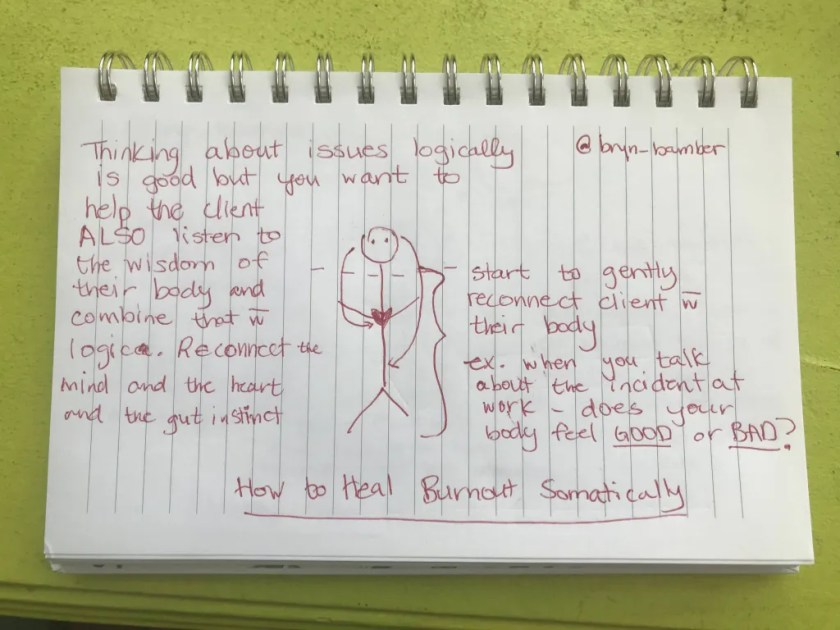 Thinking about issues logically
is good but you want to
help the client
ALSO listen to
the wisdom of
their body and
combine that w̄
logic. Reconnect the
mind and the heart
and the gut instinct
@bryn_bamber
start to gently
reconnect client w̄
their body
ex. when you talk
about the incident at
work - does your
body feel GOOD or BAD?
How to Heal Burnout Somatically